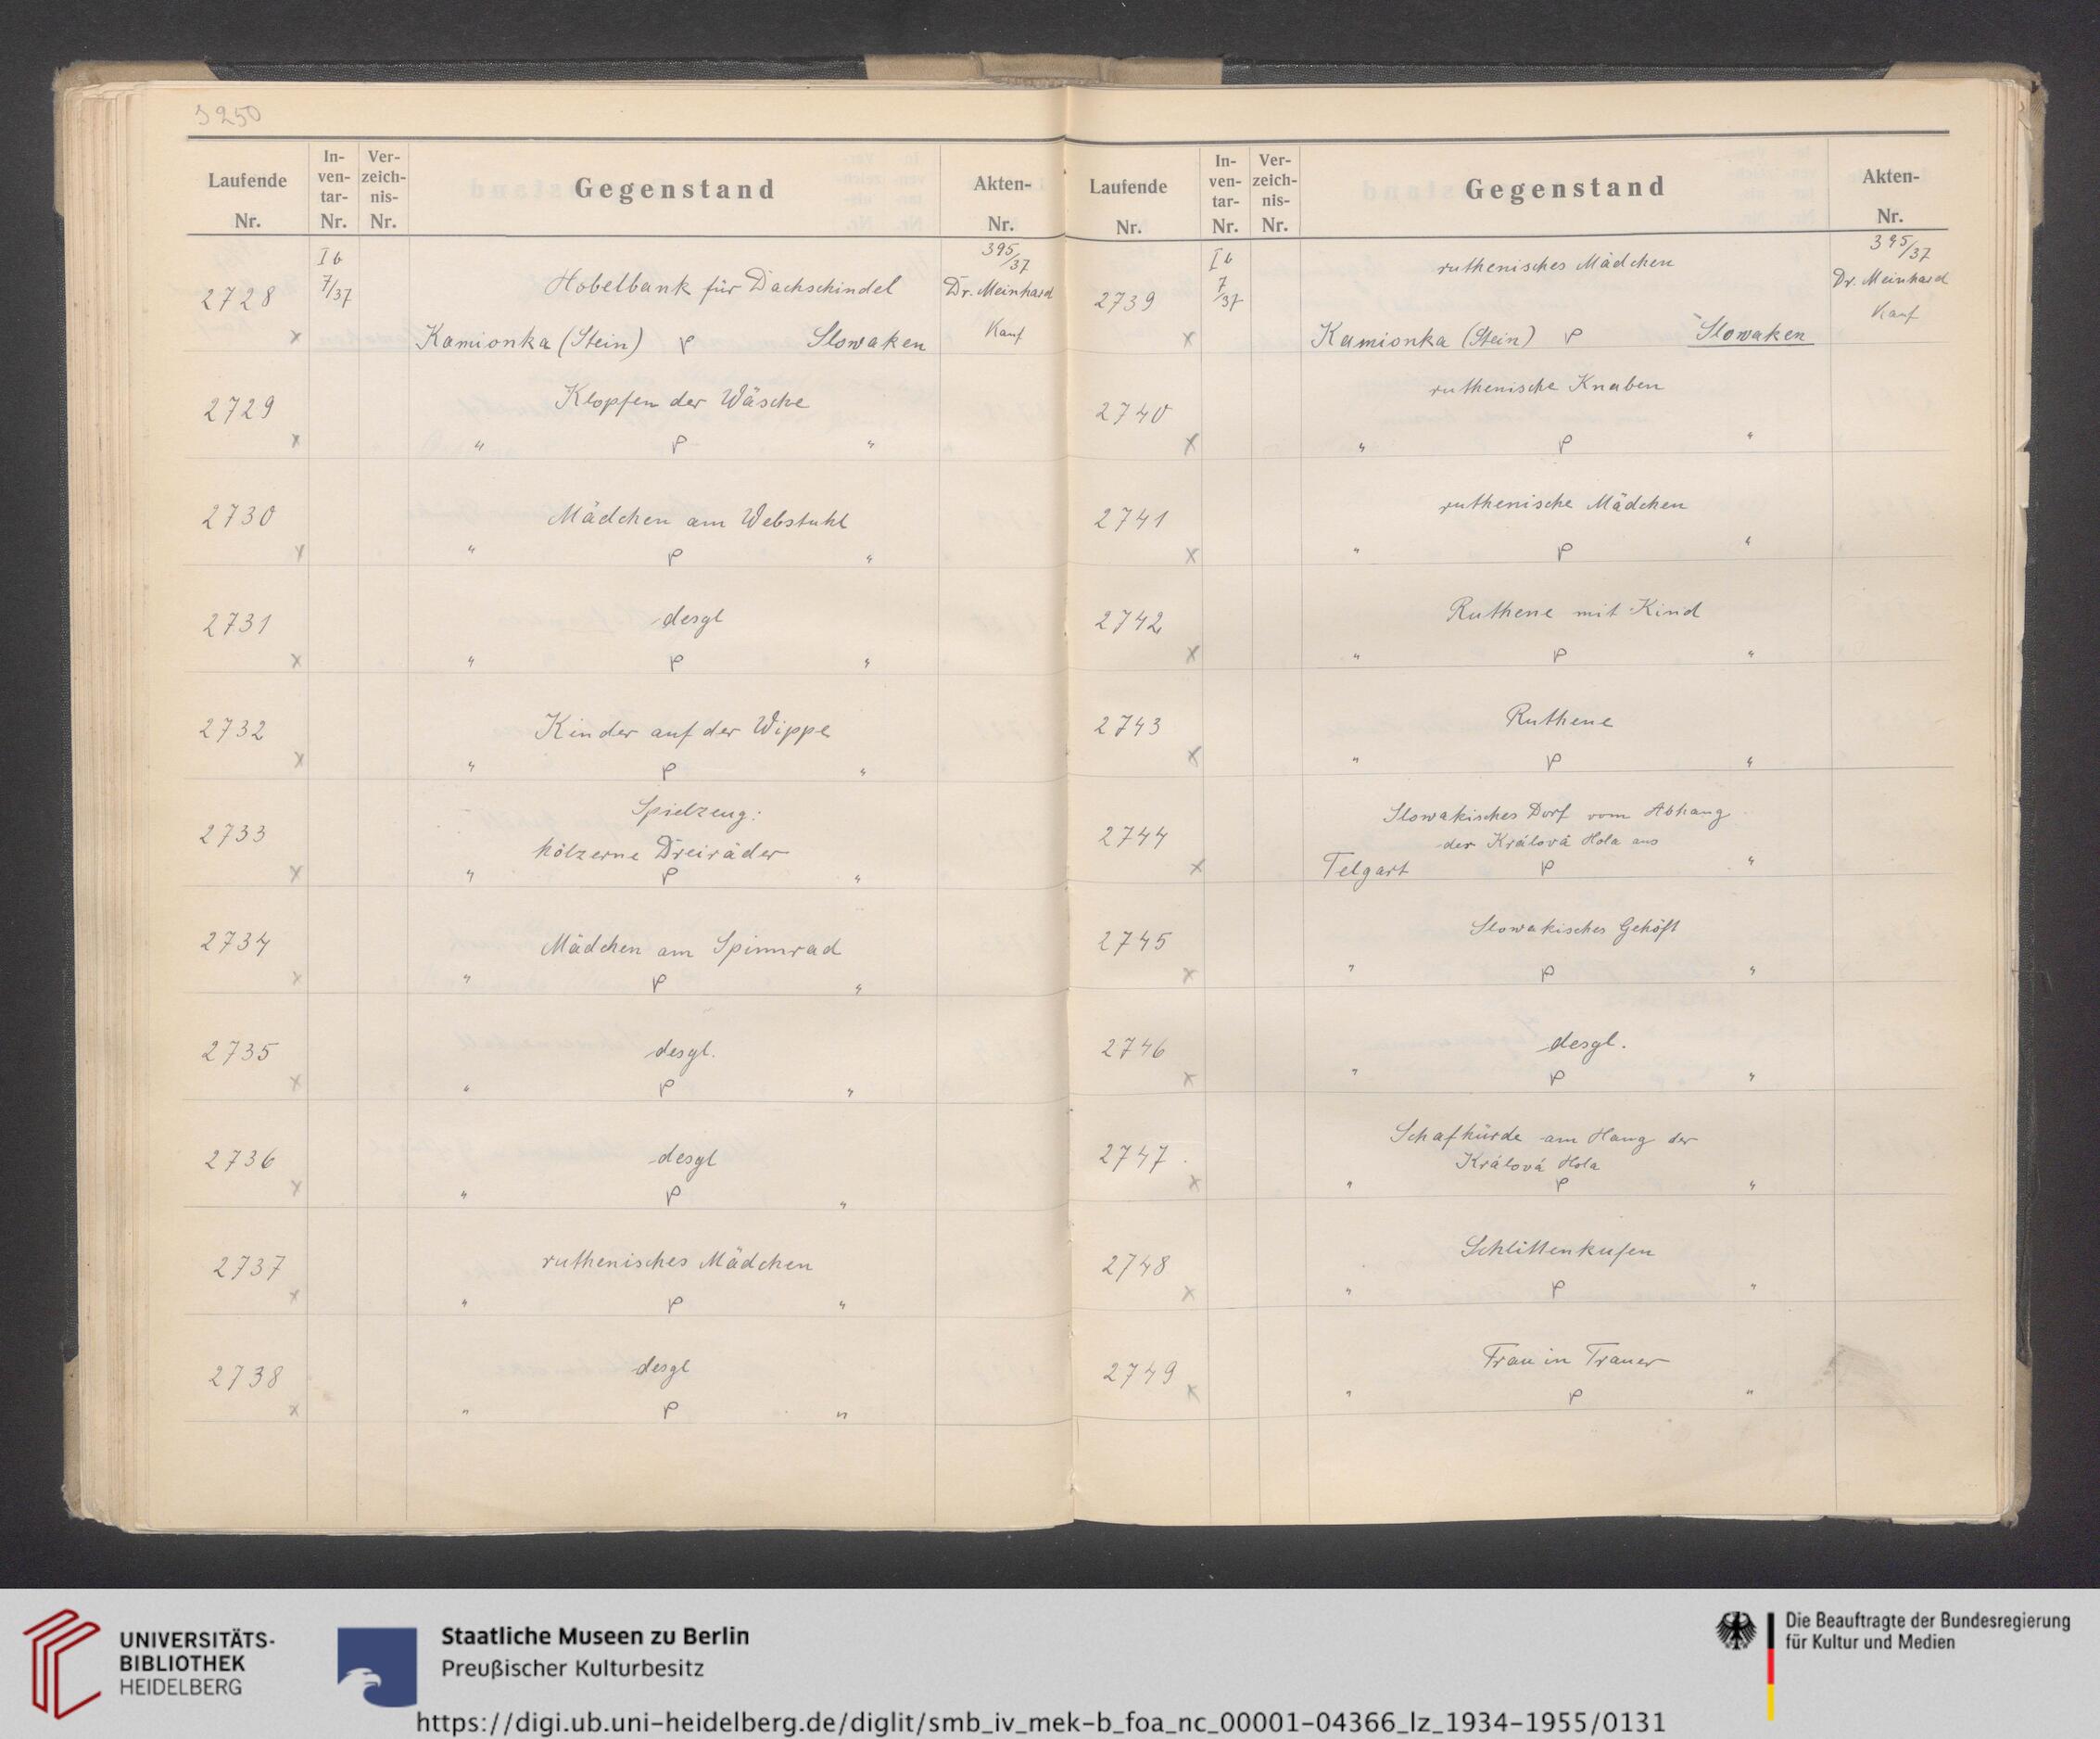 3250
Laufende Nr.
In-ven-tar-Nr.
Ver-zeich-nis-Nr.
Gegenstand
Akten-Nr.
2728 x
I b 7/37
Hobelbank für Dachschindel
Kamionka (Stein) P Slowaken
395/37
Dr. Meinhard
Kauf
2729 x
Klopfen der Wäsche
" P "
2730 x
Mädchen am Webstuhl
" P "
2731 x
desgl
" P "
2732 x
Kinder auf der Wippe
" P "
2733 x
Spielzeug:
hölzerne Dreiräder
" P "
2734 x
Mädchen am Spinnrad
" P "
2735 x
desgl.
" P "
2736 x
desgl
" P "
2737 x
ruthenisches Mädchen
" P "
2738 x
desgl
" P "
Laufende Nr.
In-ven-tar-Nr.
Ver-zeich-nis-Nr.
Gegenstand
Akten-Nr.
2739 x
I b 7/37
ruthenisches Mädchen
Kamionka (Stein) P Slowaken
395/37
Dr. Meinhard
Kauf
2740 x
ruthenische Knaben
" P "
2741 x
ruthenische Mädchen
" P "
2742 x
Ruthene mit Kind
" P "
2743 x
Ruthene
" P "
2744 x
Slowakisches Dorf vom Abhang
der Králová Hola aus
Telgart P "
2745 x
Slowakisches Gehöft
" P "
2746 x
desgl.
" P "
2747 x
Schafhürde am Hang der
Králová Hola
" P "
2748 x
Schlittenkufen
" P "
2749 x
Frau in Trauer
" P "
UNIVERSITÄTS-
BIBLIOTHEK
HEIDELBERG
Staatliche Museen zu Berlin
Preußischer Kulturbesitz
Die Beauftragte der Bundesregierung
für Kultur und Medien
https://digi.ub.uni-heidelberg.de/diglit/smb_iv_mek-b_foa_nc_00001-04366_lz_1934-1955/0131